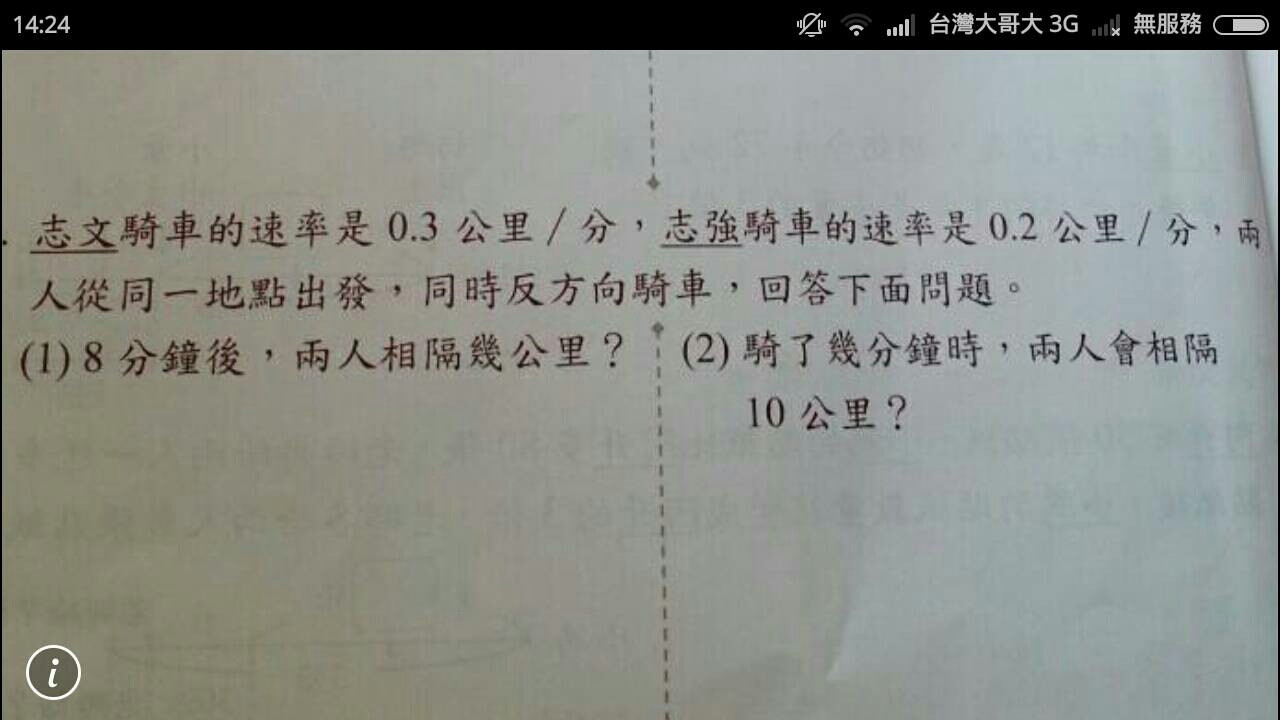 14:24 台灣大哥大 3G 無服務
. 志文騎車的速率是 0.3 公里/分，志強騎車的速率是 0.2 公里/分，兩
人從同一地點出發，同時反方向騎車，回答下面問題。
(1) 8 分鐘後，兩人相隔幾公里？
(2) 騎了幾分鐘時，兩人會相隔
10 公里？
i